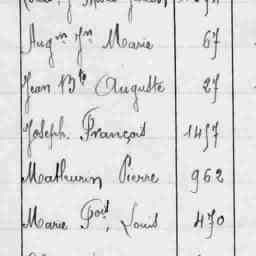 Augin Jn Marie 67
Jean Bte Auguste 27
Joseph François 1457
Mathurin Pierre 962
Marie Fois, Louis 470